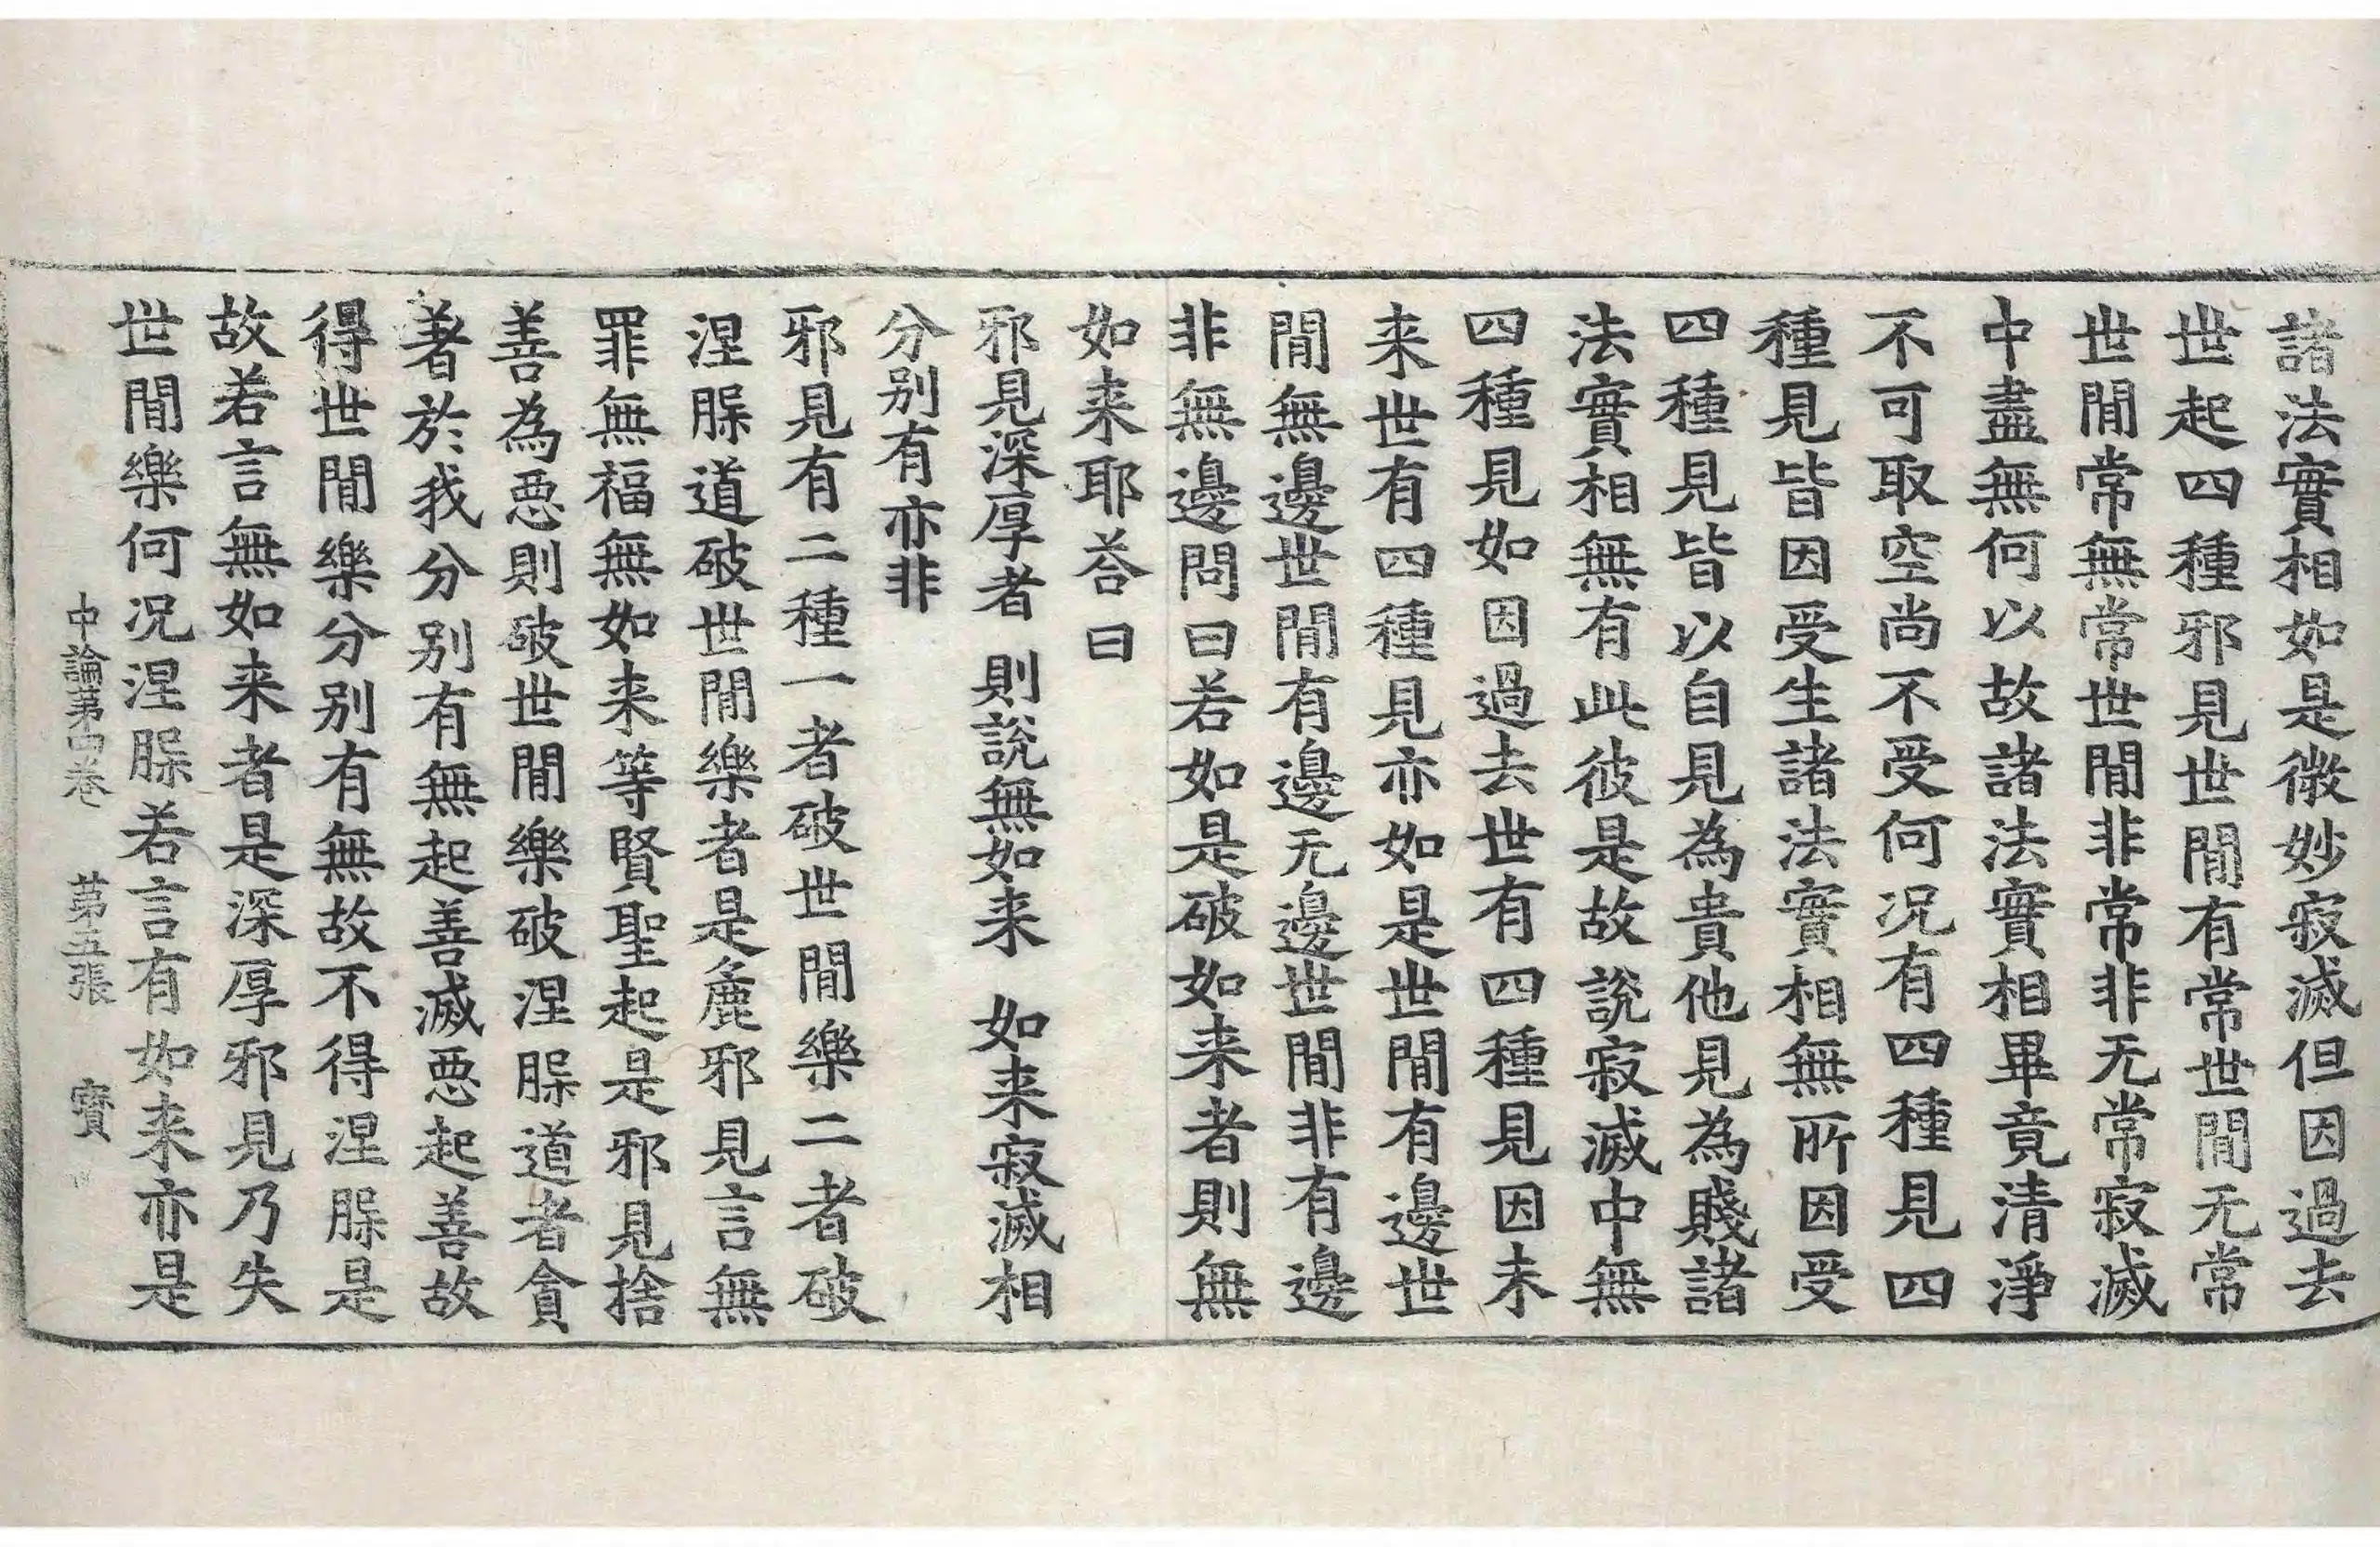 諸法實相如是微妙寂滅但因過去
世起四種邪見世間有常世間无常
世間常無常世間非常非无常寂滅
中盡無何以故諸法實相畢竟清淨
不可取空尚不受何况有四種見四
種見皆因受生諸法實相無所因受
四種見皆以自見為貴他見為賤諸
法實相無有此彼是故說寂滅中無
四種見如因過去世有四種見因未
来世有四種見亦如是世間有邊世
間無邊世間有邊无邊世間非有邊
非無邊問曰若如是破如来者則無
如来耶荅曰
邪見深厚者 則說無如来 如来寂滅相
分别有亦非
邪見有二種一者破世間樂二者破
涅脲道破世間樂者是麁邪見言無
罪無福無如来等賢聖起是邪見捨
善為惡則破世間樂破涅脲道者貪
著於我分别有無起善滅惡起善故
得世間樂分别有無故不得涅脲是
故若言無如来者是深厚邪見乃失
世間樂何况涅脲若言有如来亦是
中論第四卷 第五張 寳